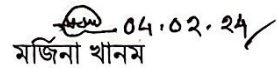 04.02.24
মর্জিনা খানম